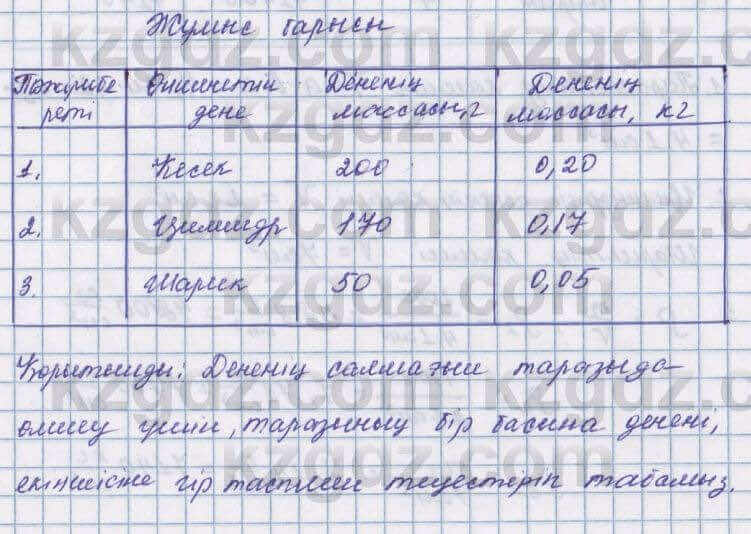 Жұмыс барысы
Тәжірибе Өлшенетін Дененің Дененің
реті дене массасы, г массасы, кг
1. Кесек 200 0,20
2. Цилиндр 170 0,17
3. Шарик 50 0,05
Қорытынды: Дененің салмағын таразыда
өлшеу үшін, таразының бір басына денені,
екіншісіне гір таспен теңестеріп табамыз.
kzgdz.com